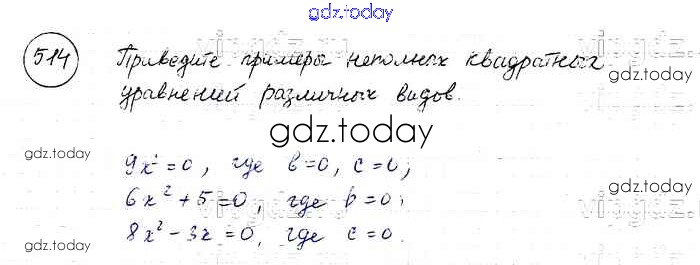 gdz.today
514 Приведите примеры неполных квадратных
уравнений различных видов.
gdz.today
gdz.today
gdz.today
gdz.today
9x²=0, где b=0, c=0;
6x²+5=0, где b=0;
8x²-3x=0, где c=0.
gdz.today
gdz.today